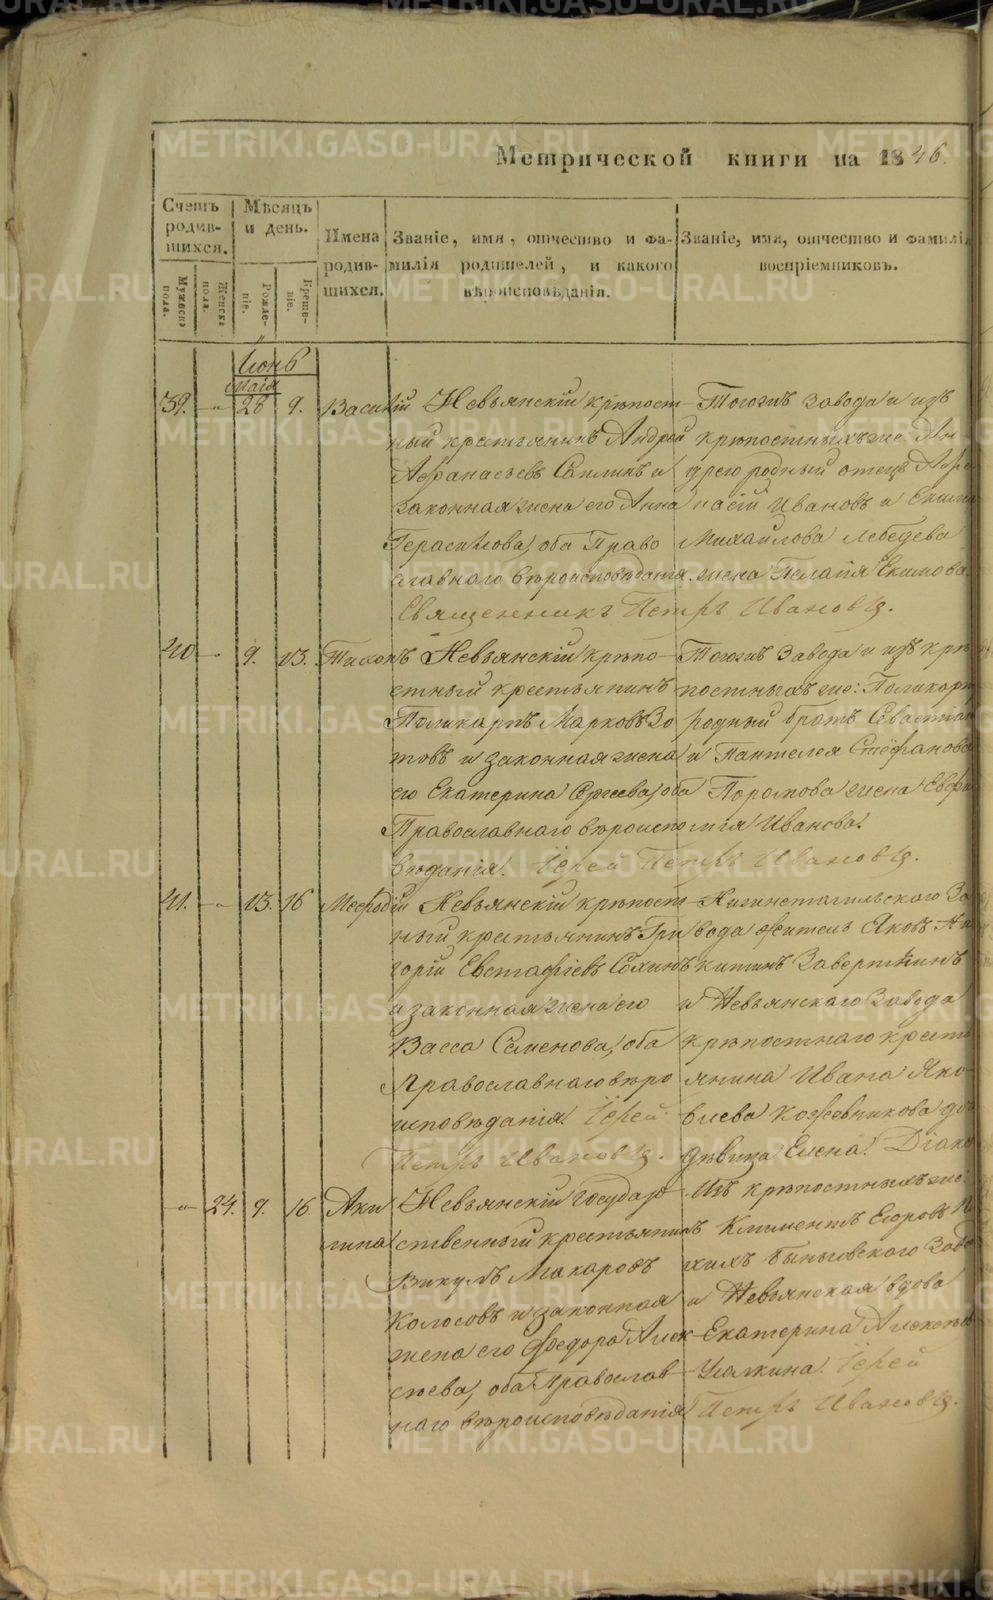 Метрической книги на 1846.
Счетъ родив-шихся.
Мѣсяцъ и день.
Имена родив-шихся.
Званіе, имя, отчество и фа-милія родителей, и какого вѣроисповѣданія.
Званіе, имя, отчество и фамилія воспріемниковъ.
Мужеска пола.
Женска пола.
Рожде-ніе.
Креще-ніе.
Іюнь
маія
39. -"- 28 9. Василій Невьянскій крѣпост-
ный крестьянинъ Андрей
Афанасьевъ Саплинъ и
законная жена его Анна
Герасимова, оба Право
славнаго вѣроисповѣданія.
Тогожъ завода и изъ
крѣпостныхъ же: Ан-
дрею родный отецъ Афа-
насій Ивановъ и
Михайлова Лебедева
жена Пелагія Екимова.
Священникъ Петръ Ивановъ.
40 -"- 9. 13. Тихонъ Невьянскій крѣпо-
стный крестьянинъ
Поликарпъ Марковъ Зо
товъ и законная жена
его Екатерина Сергеева, оба
Православнаго вѣроиспо
вѣданія.
Тогожъ Завода и изъ крѣ
постныхъ же: Поликарп
родный братъ Севастіан
и Пантелея Стефанова
Порошова жена Евфи
мія Иванова.
Іерей Петръ Ивановъ.
41. -"- 13. 16 Мефодій Невьянскій крѣпост-
ный крестьянинъ Гри
горій Евстафіевъ Сохинъ
и законная жена его
Васса Семенова, оба
Православнаго вѣро
исповѣданія. Іерей
Петръ Ивановъ.
Нижнетагильского За
вода житель Яковъ Ни
китинъ Заверткинъ
и Невьянскаго Завода
крѣпостнаго кресть
янина Ивана Яко-
влева Кожевникова до
дѣвица Елена. Діако
-"- 24. 9. 16. Аки
лина
Невьянскій Государ-
ственный крестьянинъ
Викулъ Макаровъ
Колосовъ и законная
жена его Федора Алек-
сѣева, оба Православ-
наго вѣроисповѣданія
Изъ крѣпостныхъ же:
Климентъ Егоровъ
Быньговского Заво
и Невьянская вдова
Екатерина Алексѣев
Іерей
Петръ Ивановъ.
METRIKI.GASO-URAL.RU